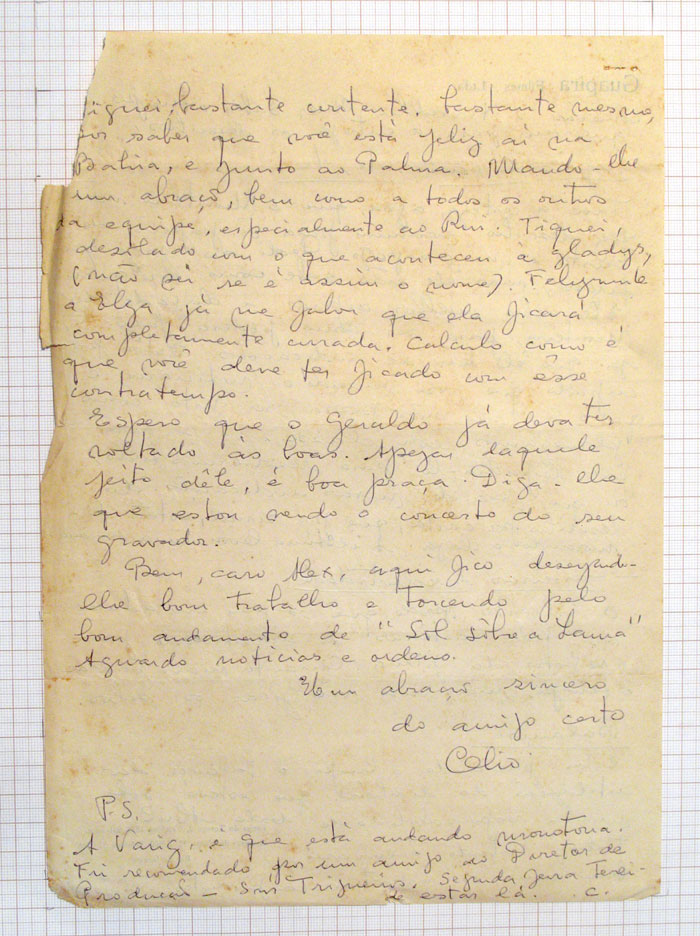 Fiquei bastante contente, bastante mesmo,
por saber que você está feliz aí na
Bahia, e junto ao Palma. Mando-lhe
um abraço, bem como a todos os outros
da equipe, especialmente ao Rui. Fiquei
desolado com o que aconteceu à Gladys,
(não sei se é assim o nome). Felizmente
a Elga já me falou que ela ficará
completamente curada. Calculo como é
que você deve ter ficado com êsse
contratempo.
Espero que o Geraldo já deva ter
voltado às boas. Apezar daquele
jeito dêle, é boa praça. Diga-lhe
que estou vendo o concesto do seu
gravador.
Bem, caro Alex, aqui fico desejando-
lhe bom trabalho e torcendo pelo
bom andamento de "Sol sôbre a Lama"
Aguardo noticias e ordens.
Um abraço sincero
do amigo certo
Celio
P.S.
A Varig, é que está andando
Fui recomendado por um amigo ao Diretor de
Produção - Snr Trigueiros. Segunda feira
estar lá. C.
Guapira Filmes Ltda